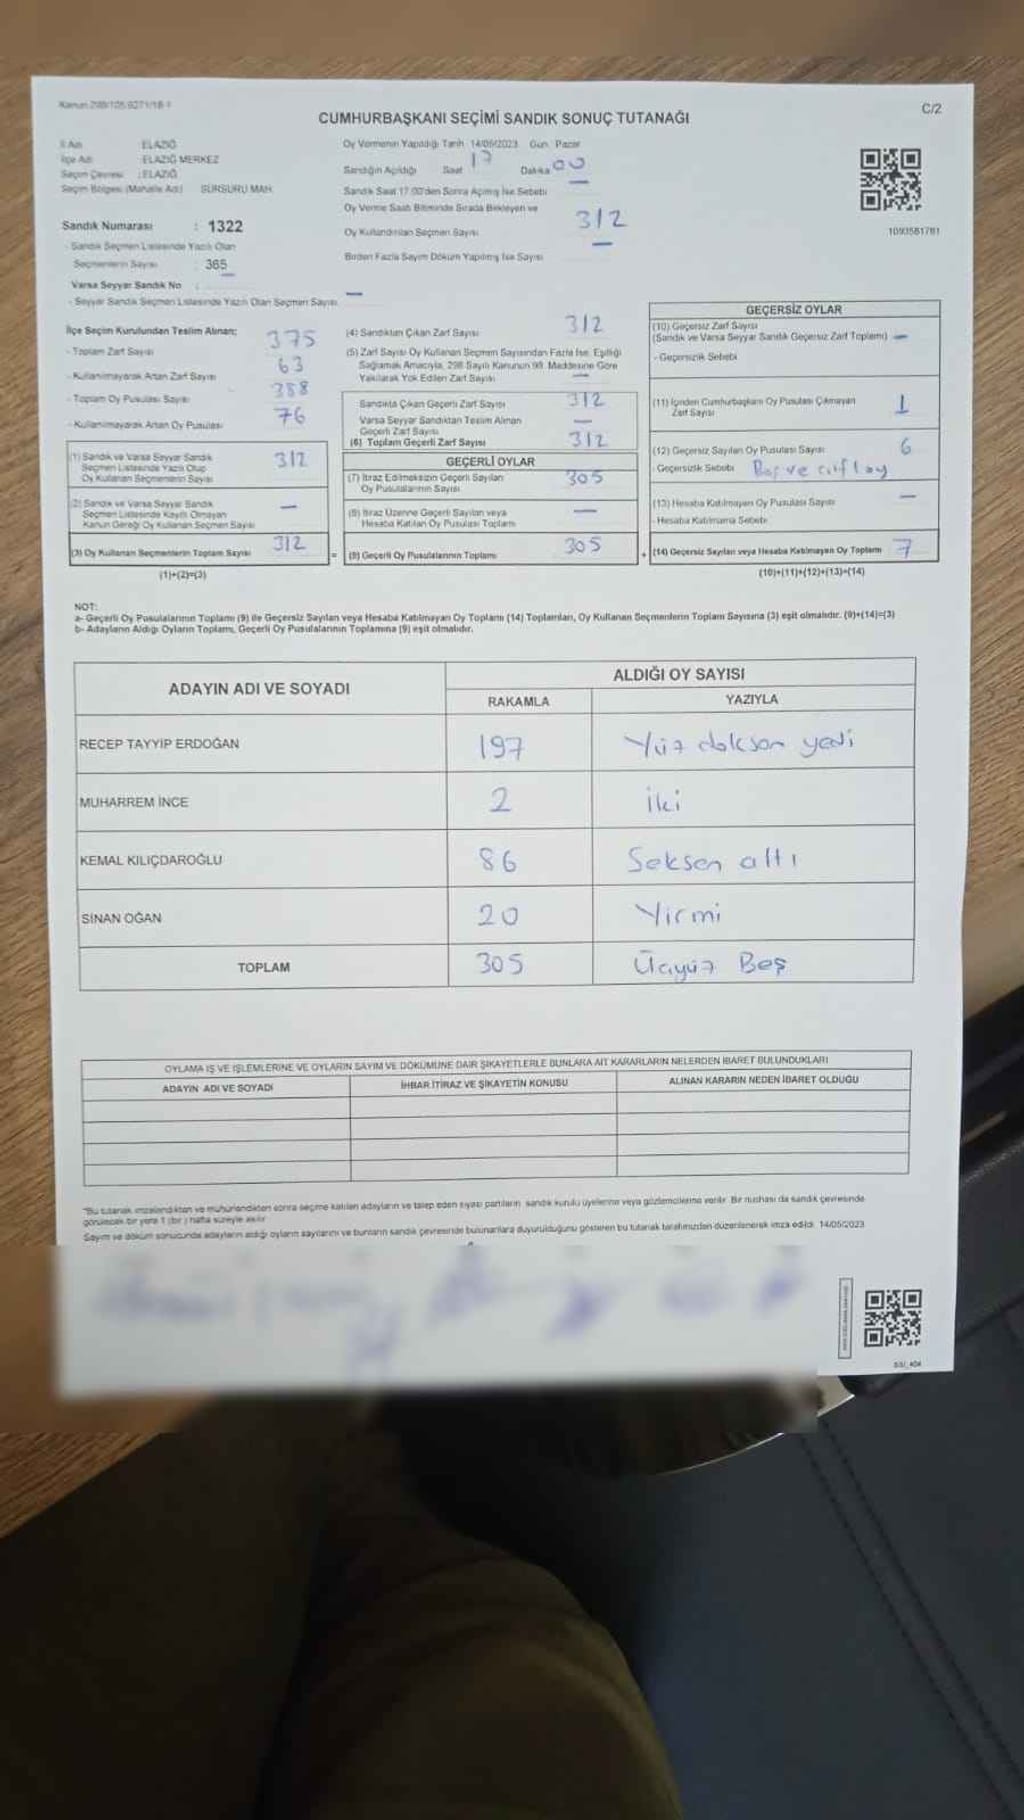 Kanun 298/105 6271/18-1
C/2
CUMHURBAŞKANI SEÇİMİ SANDIK SONUÇ TUTANAĞI
İl Adı : ELAZIĞ
İlçe Adı : ELAZIĞ MERKEZ
Seçim Çevresi : ELAZIĞ
Seçim Bölgesi (Mahalle Adı) SÜRSÜRÜ MAH.
Sandık Numarası : 1322
- Sandık Seçmen Listesinde Yazılı Olan
Seçmenlerin Sayısı : 365
Varsa Seyyar Sandık No :
- Seyyar Sandık Seçmen Listesinde Yazılı Olan Seçmen Sayısı —
Oy Vermenin Yapıldığı Tarih 14/05/2023 Gün Pazar
Sandığın Açıldığı Saat 17 Dakika 00
Sandık Saat 17.00'den Sonra Açılmış İse Sebebi —
Oy Verme Saati Bitiminde Sırada Bekleyen ve
Oy Kullandırılan Seçmen Sayısı 312
Birden Fazla Sayım Döküm Yapılmış İse Sayısı —
1093581781
İlçe Seçim Kurulundan Teslim Alınan;
- Toplam Zarf Sayısı 375
- Kullanılmayarak Artan Zarf Sayısı 63
- Toplam Oy Pusulası Sayısı 388
- Kullanılmayarak Artan Oy Pusulası 76
(1) Sandık ve Varsa Seyyar Sandık
Seçmen Listesinde Yazılı Olup
Oy Kullanan Seçmenlerin Sayısı 312
(2) Sandık ve Varsa Seyyar Sandık
Seçmen Listesinde Kayıtlı Olmayan
Kanun Gereği Oy Kullanan Seçmen Sayısı —
(3) Oy Kullanan Seçmenlerin Toplam Sayısı 312
(1)+(2)=(3)
=
(4) Sandıktan Çıkan Zarf Sayısı 312
(5) Zarf Sayısı Oy Kullanan Seçmen Sayısından Fazla İse, Eşitliği
Sağlamak Amacıyla, 298 Sayılı Kanunun 98. Maddesine Göre
Yakılarak Yok Edilen Zarf Sayısı —
Sandıkta Çıkan Geçerli Zarf Sayısı 312
Varsa Seyyar Sandıktan Teslim Alınan
Geçerli Zarf Sayısı —
(6) Toplam Geçerli Zarf Sayısı 312
GEÇERLİ OYLAR
(7) İtiraz Edilmeksizin Geçerli Sayılan
Oy Pusulalarının Sayısı 305
(8) İtiraz Üzerine Geçerli Sayılan veya
Hesaba Katılan Oy Pusulası Toplamı —
(9) Geçerli Oy Pusulalarının Toplamı 305
+
GEÇERSİZ OYLAR
(10) Geçersiz Zarf Sayısı
(Sandık ve Varsa Seyyar Sandık Geçersiz Zarf Toplamı) —
- Geçersizlik Sebebi
(11) İçinden Cumhurbaşkanı Oy Pusulası Çıkmayan
Zarf Sayısı 1
(12) Geçersiz Sayılan Oy Pusulası Sayısı 6
- Geçersizlik Sebebi Boş ve çift oy
(13) Hesaba Katılmayan Oy Pusulası Sayısı —
- Hesaba Katılmama Sebebi
(14) Geçersiz Sayılan veya Hesaba Katılmayan Oy Toplamı 7
(10)+(11)+(12)+(13)=(14)
NOT:
a- Geçerli Oy Pusulalarının Toplamı (9) ile Geçersiz Sayılan veya Hesaba Katılmayan Oy Toplamı (14) Toplamları, Oy Kullanan Seçmenlerin Toplam Sayısına (3) eşit olmalıdır. (9)+(14)=(3)
b- Adayların Aldığı Oyların Toplamı, Geçerli Oy Pusulalarının Toplamına (9) eşit olmalıdır.
ADAYIN ADI VE SOYADI
ALDIĞI OY SAYISI
RAKAMLA YAZIYLA
RECEP TAYYİP ERDOĞAN 197 Yüz doksan yedi
MUHARREM İNCE 2 İki
KEMAL KILIÇDAROĞLU 86 Seksen altı
SİNAN OĞAN 20 Yirmi
TOPLAM 305 Üçyüz Beş
OYLAMA İŞ VE İŞLEMLERİNE VE OYLARIN SAYIM VE DÖKÜMÜNE DAİR ŞİKAYETLERLE BUNLARA AİT KARARLARIN NELERDEN İBARET BULUNDUKLARI
ADAYIN ADI VE SOYADI İHBAR İTİRAZ VE ŞİKAYETİN KONUSU ALINAN KARARIN NEDEN İBARET OLDUĞU
"Bu tutanak imzalandıktan ve mühürlendikten sonra seçime katılan adayların ve talep eden siyasi partilerin sandık kurulu üyelerine veya gözlemcilerine verilir. Bir nüshası da sandık çevresinde
görülecek bir yere 1 (bir) hafta süreyle asılır
Sayım ve döküm sonucunda adayların aldığı oyların sayılarını ve bunların sandık çevresinde bulunanlara duyurulduğunu gösteren bu tutanak tarafımızdan düzenlenerek imza edildi. 14/05/2023